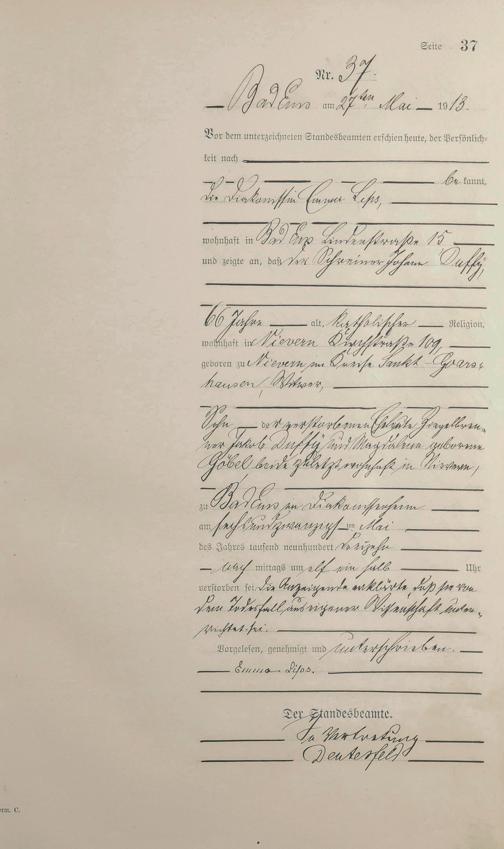 Seite 37
Nr. 37.
Bad Ems am 27ten Mai 1913.
Vor dem unterzeichneten Standesbeamten erschien heute, der Persönlich-
keit nach
be kannt,
die Diakonissin Emma
wohnhaft in Bad Ems Lindenstraße 15
und zeigte an, daß der Schreiner Johann Duffy,
66 Jahre alt, katholischer Religion,
wohnhaft in Nievern 109
geboren zu Nievern, im Kreise Sankt-Goars-
hausen, Witwer,
Sohn der verstorbenen Eheleute Ziegelbren-
ner Jakob Duffy und Magdalena geborene
Göbel beide zuletzt wohnhaft in Nievern,
zu Bad Ems im Diakonissenheim
am sechsundzwanzigsten Mai
des Jahres tausend neunhundert dreizehn
nach mittags um elf ein halb Uhr
verstorben sei. Die Anzeigende erklärte, daß sie von
dem Todesfall aus eigener Wissenschaft unter-
richtet sei.
Vorgelesen, genehmigt und unterschrieben.
Emma
Der Standesbeamte.
In Vertretung
rm. C.